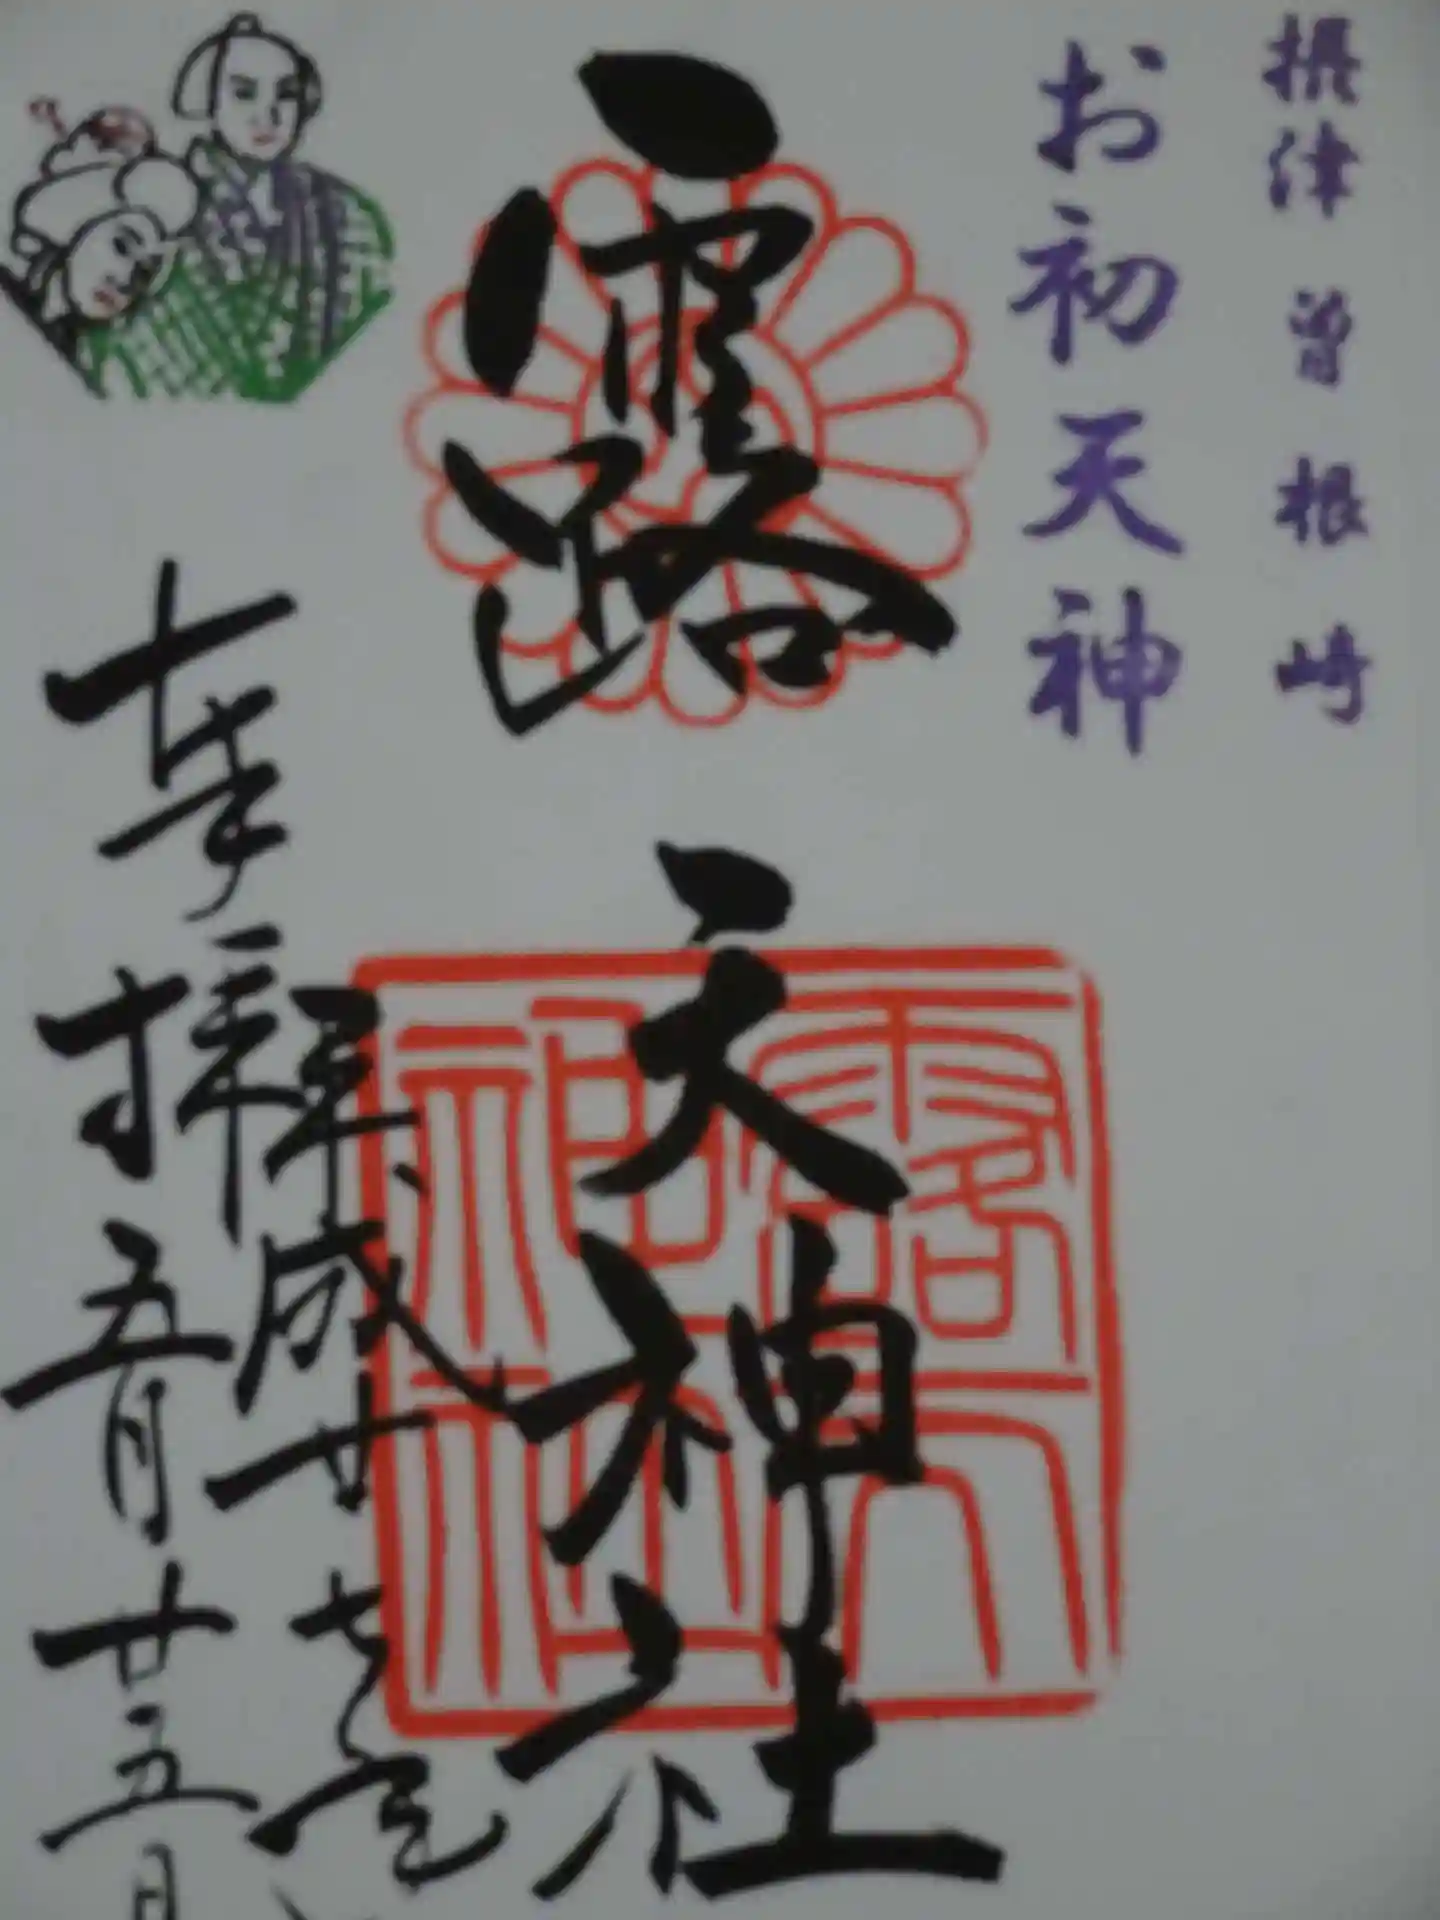 摂津曽根崎
お初天神
露天神社
奉拝
平成廿七年
五月廿五日
露天神社